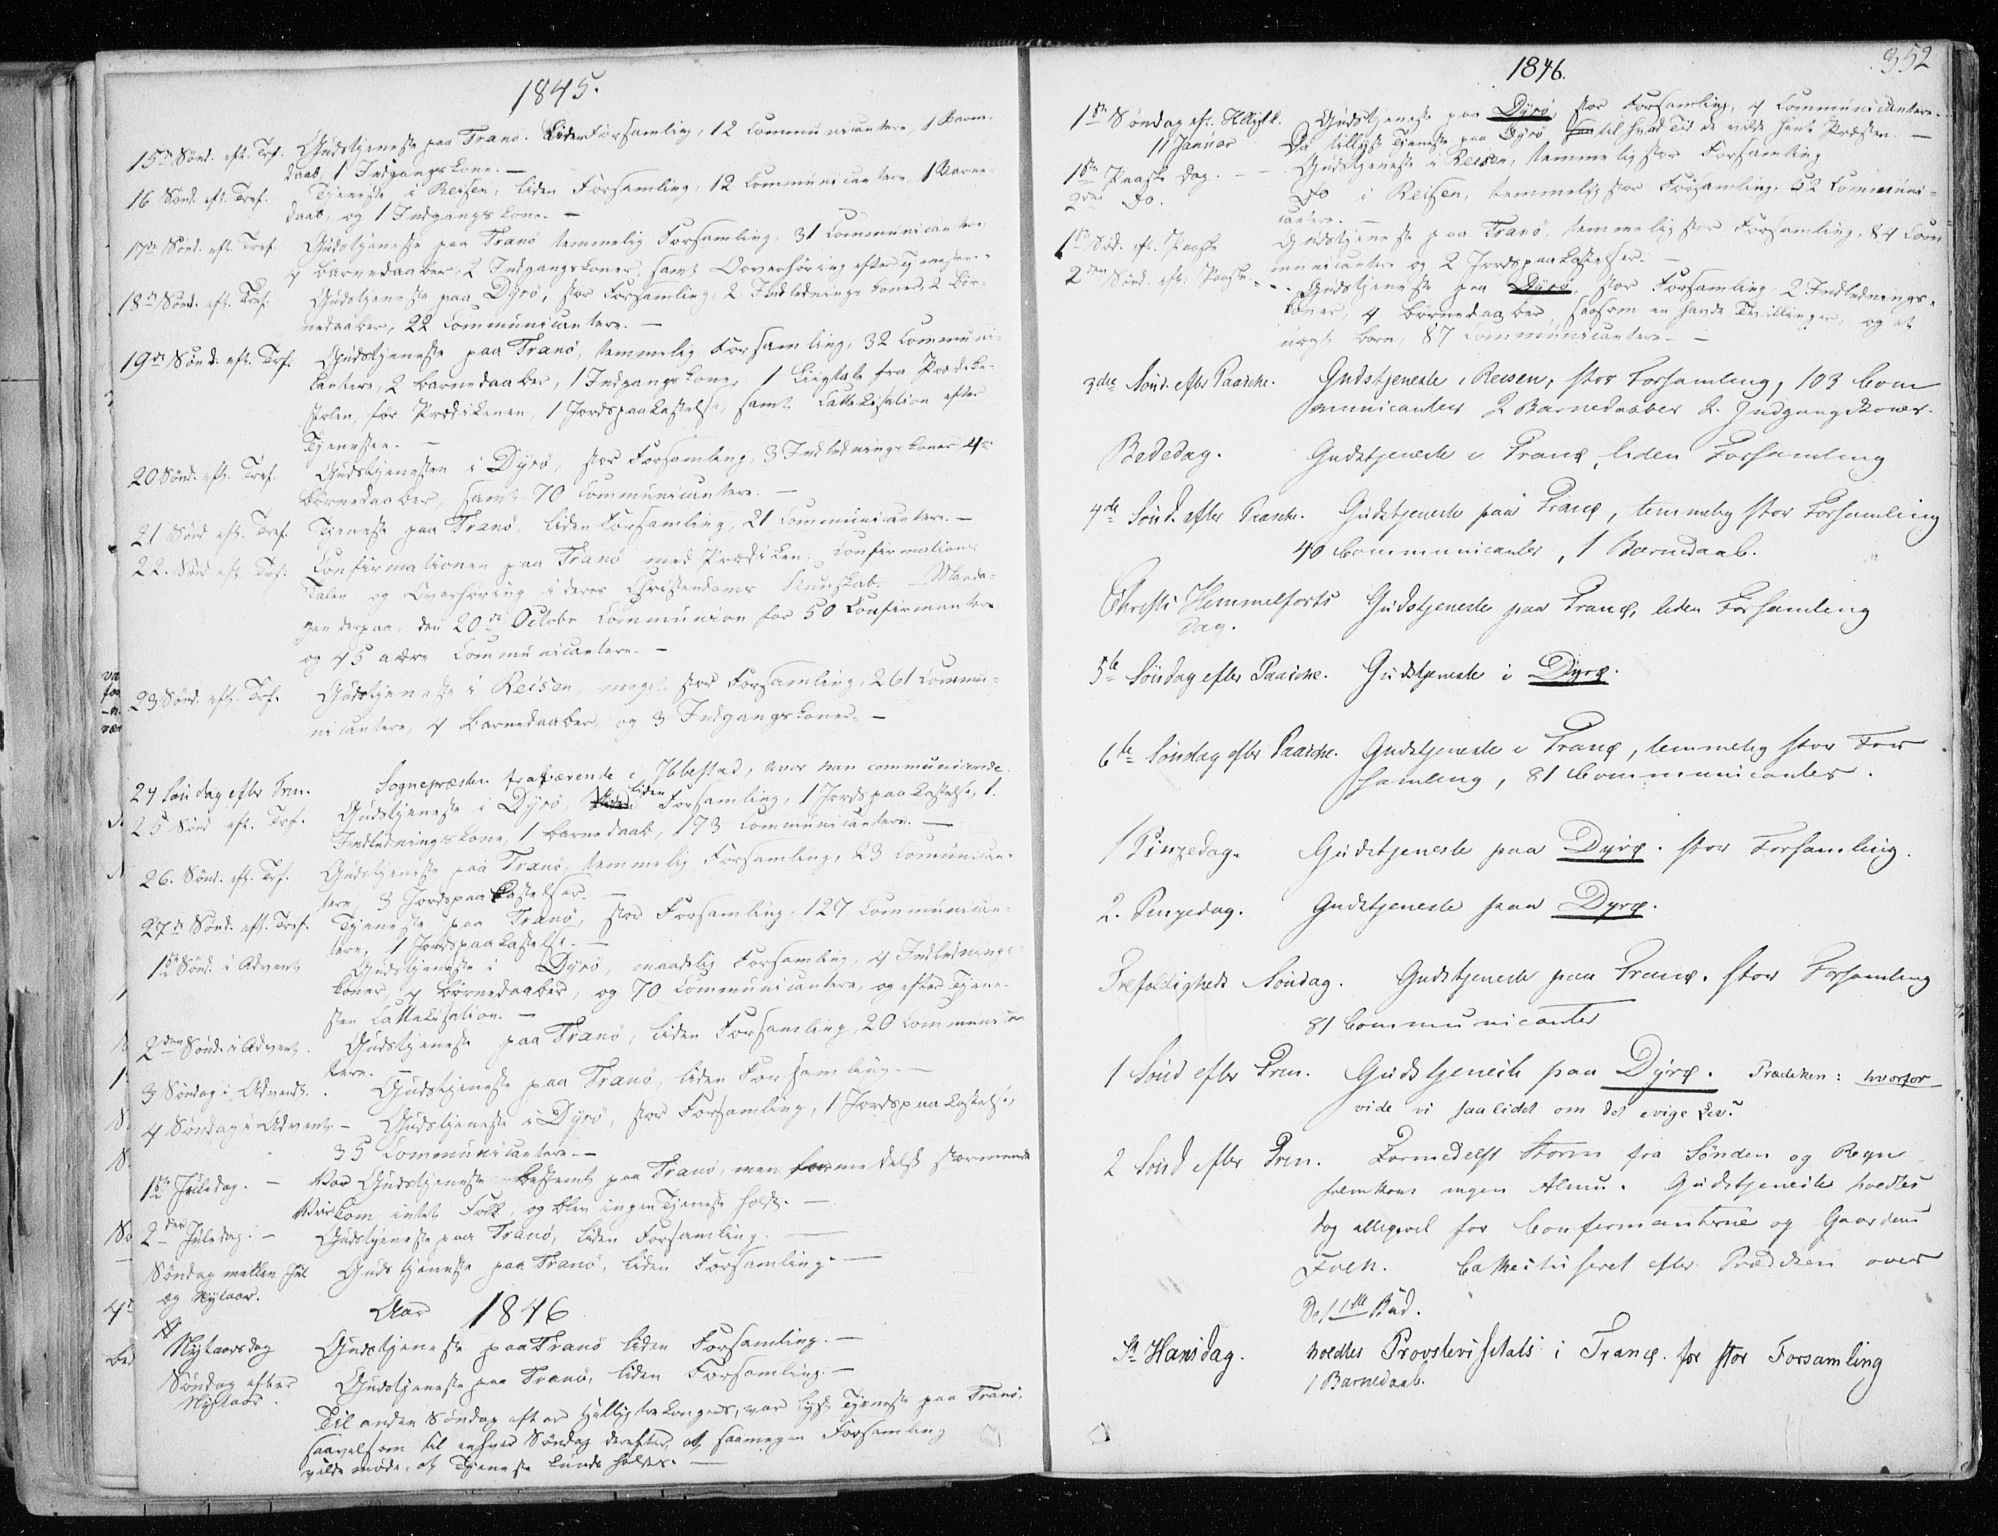 1845.
15de Sønd. eft. Tref. Gudstjeneste paa Tranø. Liden Forsamling, 12 Communicantere, 1 Barne-
daab, 1 Indgangskone. —
16 Sønd. eft. Tref. Tjeneste i Reisen, liden Forsamling, 12 Communicantere, 1 Barne-
daab, og 1 Indgangskone. —
17de Sønd. eft. Tref. Gudstjeneste paa Tranø temmelig Forsamling, 31 Communicantere
4 barnedaaber, 2 Indgangskoner, samt Overhøring efter Tjenesten. -
18de Sønd. eft. Tref. Gudstjeneste paa Dyrø, stor Forsamling, 2 Indlednings koner, 2 Bør-
nedaaber, 22 Communicantere. —
19de Sønd. eft. Tref. Gudstjeneste paa Tranø, temmelig Forsamling, 32 Communi-
cantere, 2 barnedaaber, 1 Indgangskone, 1 Liigtale fra Prædike-
stolen, før Prædikenen, 1 Jordspaakastelse, samt Cattekisation efter
Tjenesten. —
20 Sønd. eft. Tref. Gudstjenesten i Dyrø, stor Forsamling, 3 Indledningskoner, 4re
børnedaaber, samt 70 Communicantere. —
21 Sønd eft. Tref. Tjeneste paa Tranø, liden Forsamling, 21 Communicantere. —
22. Sønd eft. Tref. Confirmationen paa Tranø med Prædiken, Confirmations
Talen og Overhøring i deres Christendoms Kundskab. — Manda-
gen derpaa, den 20de Octobr Communion for 50 Confirmanter
og 45 andre Communicantere. —
23 Sønd. eft. Tref. Gudstjeneste i Reisen meget stor Forsamling, 261 Commu-
nicantere, 4 barnedaaber, og 3 Indgangskoner. —
24 Søndag efter Tren. Sognepræsten fraværende i Ibbestad, hvor han communicerede.
25 Sønd eft. Tref. Gudstjeneste i Dyrø, liden Forsamling, 1 Jordspaakastelse, 1.
Indledningskone, 1 barnedaab, 173 Communicantere. —
26. Sønd. eft. Tref. Gudstjeneste paa Tranø, temmelig Forsamling, 23 Comunican-
tere, 3 Jordspaakastelser. —
27de Sønd. eft. Tref. Tjeneste paa Tranø, stor Forsamling, 127 Communican-
tere, 1 Jordspaakastelse. —
1ste Sønd. i Advent Gudstjeneste i Dyrø, maadelig Forsamling, 4 Indlednings-
koner, 4 børnedaaber, og 70 Communicantere, og efter Tjene-
sten Cattekisation. —
2den Sønd. i Advent. Gudstjeneste paa Tranø, liden Forsamling, 20 Communican
tere. —
3 Søndag i Advent. Gudstjeneste paa Tranø, liden Forsamling. —
4 Søndag i Advent — Gudstjeneste i Dyrø, stor Forsamling, 1 Jordspaakastelse,
35 Communicantere. —
1ste Juledag. — Var Gudstjeneste bestemt paa Tranø, men formedelst stormende
Veir kom intet Folk, og blev ingen Tjeneste holdt. —
2den Juledag. — Gudstjeneste paa Tranø, liden Forsamling. —
Søndag mellem Jul Gudstjeneste paa Tranø, liden Forsamling. —
og Nytaar.
Aar 1846
Nytaarsdag Gudstjeneste paa Tranø liden Forsamling. —
Søndag efter Gudstjeneste paa Tranø, liden Forsamling. —
Nytaar.
Til anden Søndag efter Hellig tre Konger, var lyst Tjeneste paa Tranø,
saavelsom til enhver Søndag derefter, at saamegen Forsamling
vilde møde, at Tjeneste kunde holdes. —
1846. 352
1ste Søndag eft. Helligtr. Gudstjeneste paa Dyrø, stor Forsamling, 4 Communicantere.
11 Januar Da tillyst Tjeneste paa Dyrø til hvad Tid de vilde hente Præsten. —
1ste Paaske Dag. — Gudstjeneste i Reisen, temmelig stor Forsamling
2den Do. Do i Reisen, temmelig stor Forsamling, 52 Communi-
cantere. —
1ste Sød. eft. Paaske Gudstjeneste paa Tranø, temmelig stor Forsamling, 84 Com
municantere og 2 Jordspaakastelser. —
2den Sønd. eft. Paaske - - Gudstjeneste paa Dyrø, stor Forsamling 2 Indlednings-
koner, 4 børnedaaber, saasom en hands Tvillinger, og et
uægte barn, 87 Communicantere. —
3die Sønd. efter Paaske. Gudstjeneste i Reisen, stor Forsamling, 103 Com
municanter 2 Barnedaaber 2. Indgangskoner.
Bededag. Gudstjeneste i Tranø, liden Forsamling
4de Sønd. efter Paaske. Gudstjeneste paa Tranø, temmelig stor Forsamling
40 Communicanter, 1 Barnedaab.
Christi Hemmelfarts Gudstjeneste paa Tranø, liden Forsamling
Dag.
5te Søndag efter Paaske. Gudstjeneste i Dyrø.
6te Søndag efter Paaske. Gudstjeneste i Tranø, temmelig stor For
samling, 81 Communicanter.
1 Pinzedag. Gudstjeneste paa Dyrø. stor Forsamling.
2. Pinzedag. Gudstjeneste paa Dyrø.
Trefoldigheds Søndag. Gudstjeneste paa Tranø. stor Forsamling
81 Communicanter
1 Sønd efter Tren. Gudstjeneste paa Dyrø. Prædiken: hvorfor
vide vi saalidet om det evige Liv?
2 Sønd efter Tren. Formedelst Storm fra Sønden og Regn
fremkom ingen Almu. Gudstjeneste holdtes
dog alligevel for Confermanterne og Gaardens
Folk. Catheciseret efter Præd'ken over
Det 1ste Bud.
St Hansdag. holdtes Provstevisitats i Tranø. for stor Forsamling
1 Barnedaab.